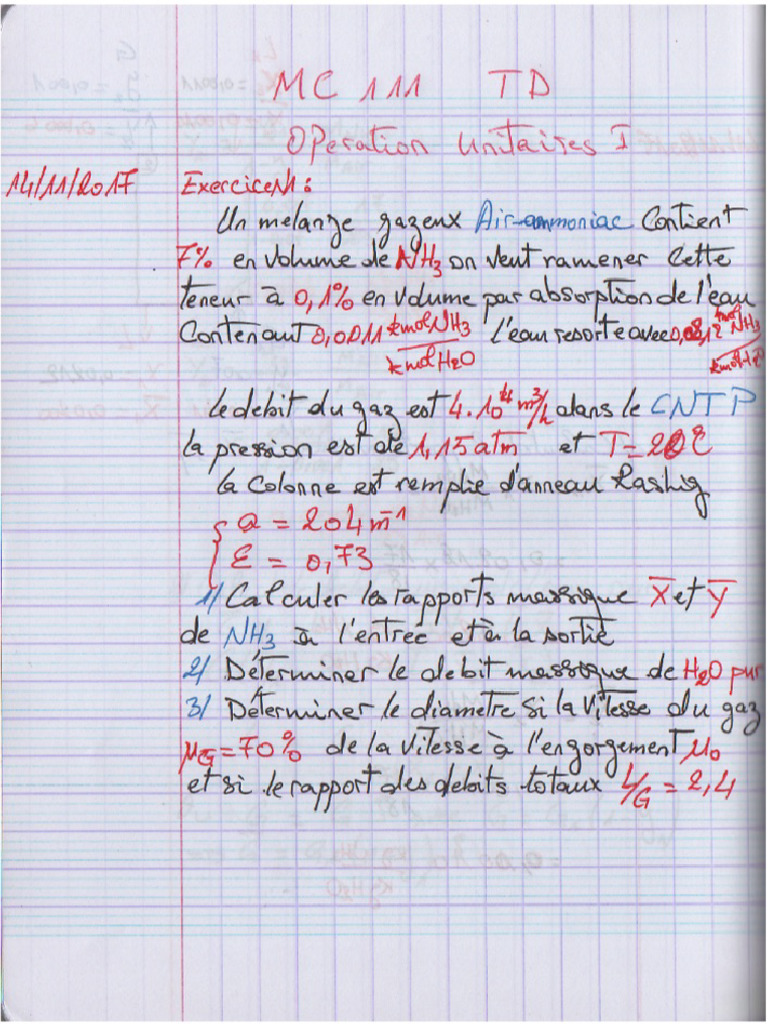 MC 111 TD
Operation unitaires I
14/11/2017 Exercice N1:
Un melange gazeux Air-ammoniac Contient
7% en volume de NH3 on veut ramener Cette
teneur à 0,1% en volume par absorption de l'eau
Contenant 0,0011 kmol NH3 / kmol H2O l'eau resorte avec 0,0812 kmol NH3 / kmol H2O
le debit du gaz est 4.10^4 m^3/h dans le CNTP
la pression est de 1,15 atm et T=20°C
la Colonne est remplie d'anneau Rashig
a = 204 m^-1
ε = 0,73
1/ Calculer les rapports massique X̄ et Ȳ
de NH3 à l'entrée et à la sortie
2/ Déterminer le debit massique de H2O pur
3/ Déterminer le diametre si la vitesse du gaz
μG=70% de la vitesse à l'engorgement μ0
et si le rapport des debits totaux L/G = 2,4